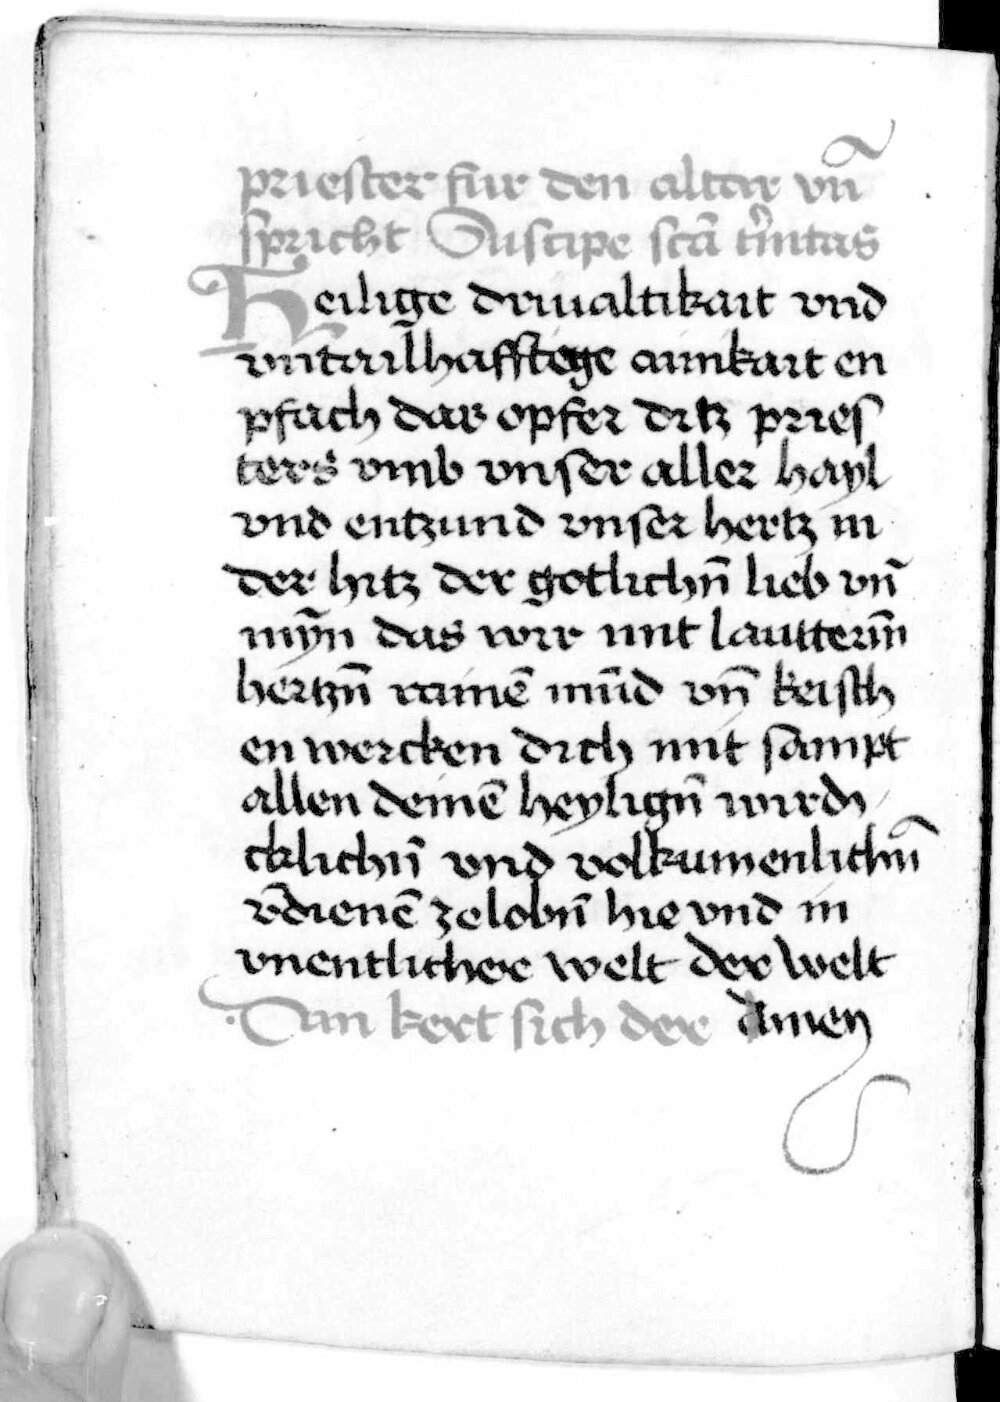 priester fur den altar vn̄
spricht Suscipe sctā t'nitas
Heilige driualtikait vnd
vntailhafftige ainikait en
pfach daz opfer ditz pries
ters vmb vnser aller hayl
vnd entzund vnser hertz in
der hitz der gotlichn̄ lieb vn̄
myn̄ das wir mit lautterm̄
hertzn̄ rainē mūd vn̄ keisch
en wercken dich mit sampt
allen deinē heylign̄ wirdi
cklichn̄ vnd volkumenlichn̄
v̄dienē ze lobn̄ hie vnd in
vnentlicher welt der welt
Dan kert sich der amen